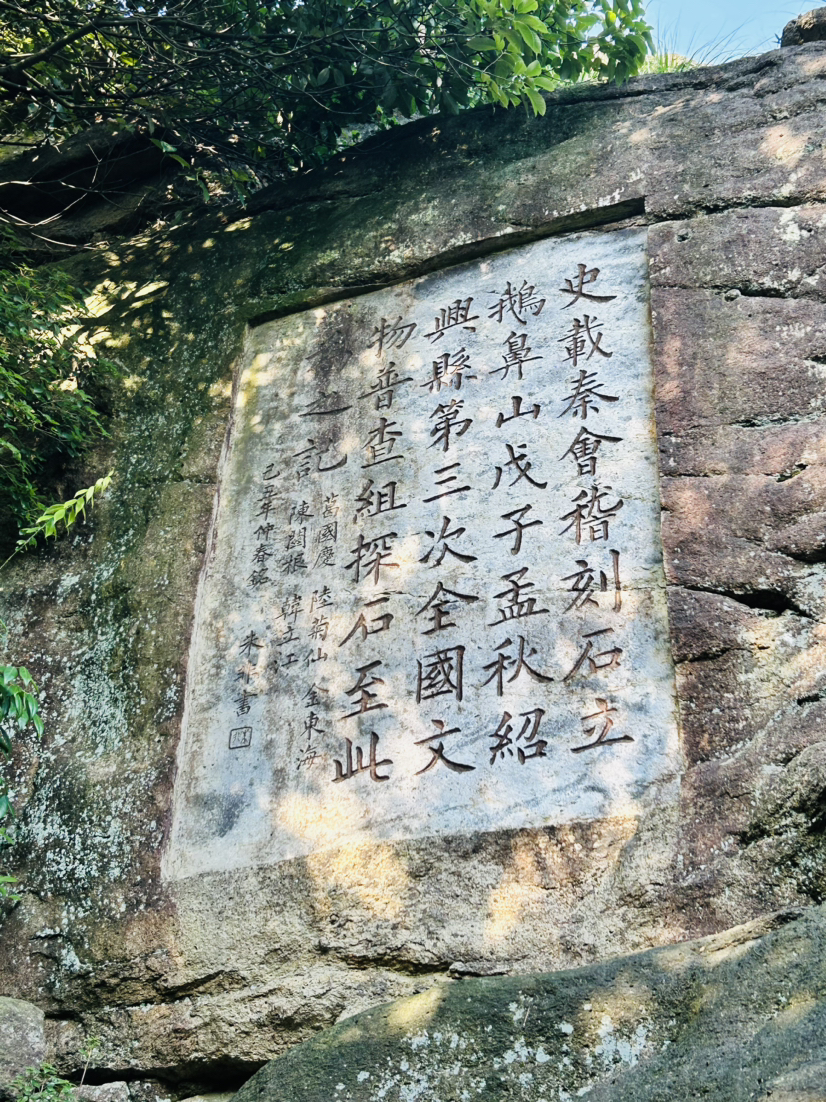 史載秦會稽刻石立
鵝鼻山戊子孟秋紹
興縣第三次全國文
物普查組探石至此
之記
葛國慶 陸菊仙 金東海
陳閏根 韓立江
己丑年仲春
朱 書